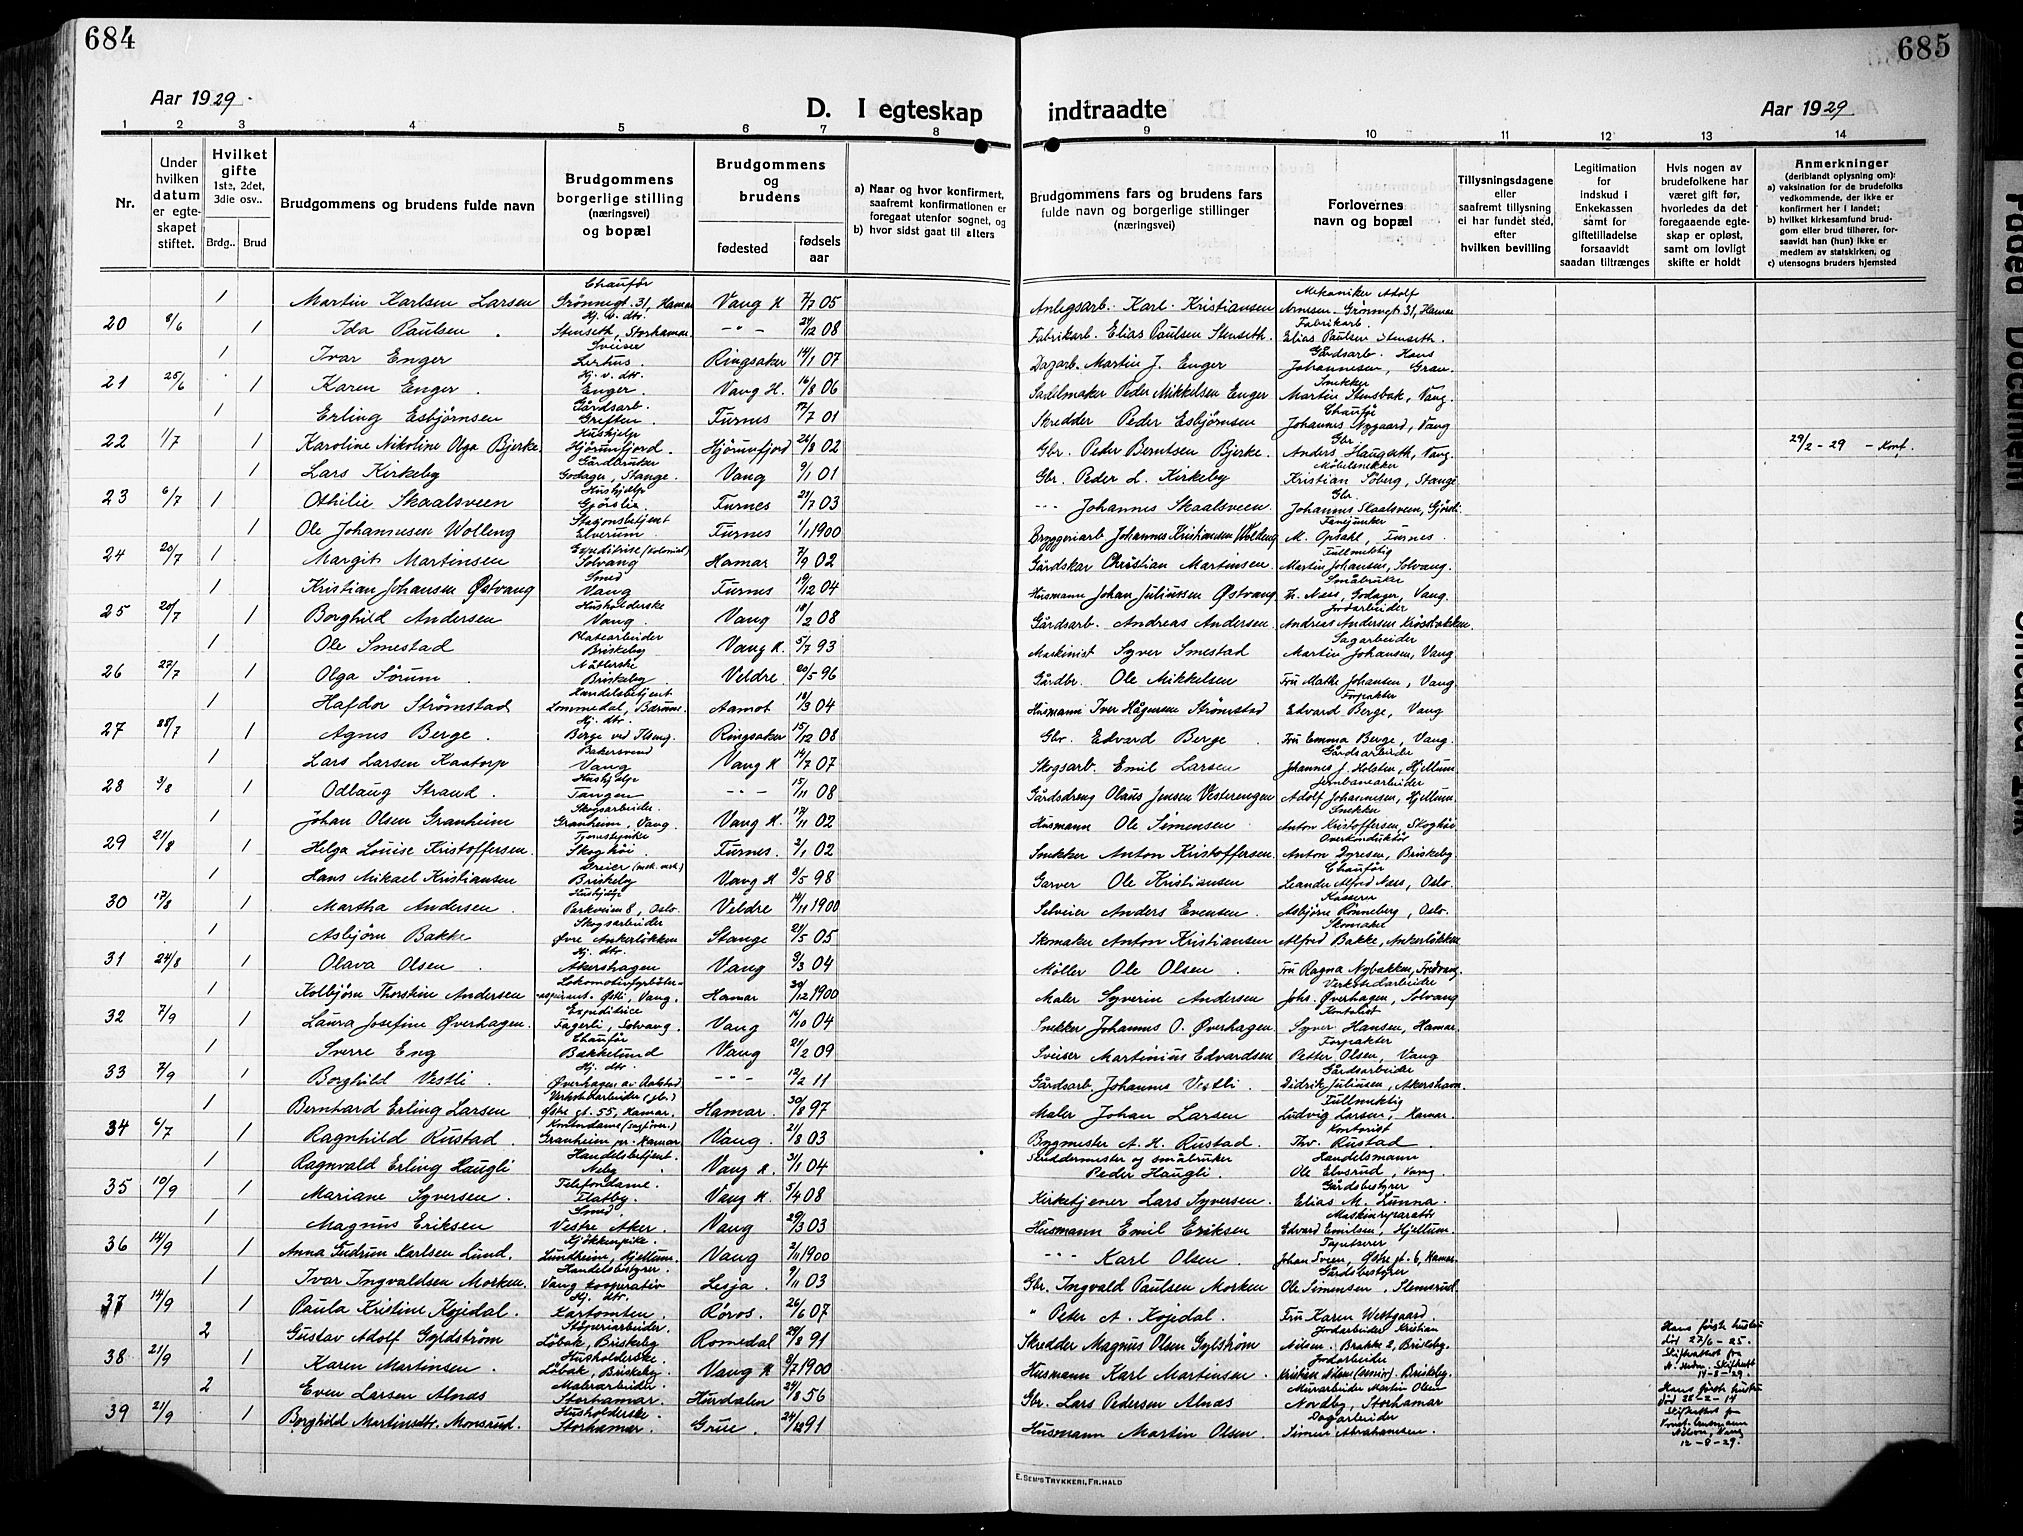 684
685
Aar 1929.
D. I egteskap
indtraadte
Aar 1929
1 2 3 4 5 6 7 8 9 10 11 12 13 14
Nr.
Under hvilken datum er egteskapet stiftet.
Hvilket gifte 1ste, 2det, 3die osv..
Brdg.. Brud
Brudgommens og brudens fulde navn
Brudgommens borgerlige stilling (næringsvei) og bopæl
Brudgommens og brudens
fødested
fødsels aar
a) Naar og hvor konfirmert, saafremt konfirmationen er foregaat utenfor sognet, og
b) hvor sidst gaat til alters
Brudgommens fars og brudens fars fulde navn og borgerlige stillinger (næringsvei)
Forlovernes navn og bopæl
Tillysningsdagene eller saafremt tillysning ei har fundet sted, efter hvilken bevilling
Legitimation for indskud i Enkekassen samt for giftetilladelse forsaavidt saadan tiltrænges
Hvis nogen av brudefolkene har været gift før, hvorledes da det foregaaende egteskap er opløst, samt om lovligt skifte er holdt
Anmerkninger (deriblandt oplysning om):
a) vaksination for de brudefolks vedkommende, der ikke er konfirmert her i landet;
b) hvilket kirkesamfund brudgom eller brud tilhører, forsaavidt han (hun) ikke er medlem av statskirken, og
c) utensogns bruders hjemsted
1 Martin Karlsen Larsen Chauffør Grønnegt. 31, Hamar Vang H 7/7 05 Anlegsarb. Karl Kristiansen Mekaniker Adolf Arnesen Grønnegt 31, Hamar
20 8/6 1 Ida Paulsen Hj. v. dtr. Stenseth, Storhamar 24/12 08 Fabrikarb. Elias Paulsen Stenseth Fabrikarb. Elias Paulsen Stenseth.
1 Ivar Enger Sveiser Lerhus Ringsaker 14/1 07 Dagarb. Martin J. Enger Gårdsarb. Hans Johannesen, Gran.
21 25/6 1 Karen Enger Hj. v. dtr. Enger Vang H. 16/8 06 Sadelmaker Peder Mikkelsen Enger Snekker Martin Stensbak, Vang.
1 Erling Esbjørnsen Gårdsarb. Griften Furnes 17/7 01 Skredder Peder Esbjørnsen Chauffør Johannes Nygaard, Vang
22 1/7 1 Karoline Nikoline Olga Bjerke Hushjelp Hjørunfjord Hjørunfjord 26/8 02 Gbr. Peder Berntsen Bjerke Gbr. Anders Haugseth, Vang. 29/2-29 - Konf.
1 Lars Kirkeby Gårdbruker Godager, Stange. Vang 9/1 01 Gbr. Peder L. Kirkeby Møbelsnekker Kristian Søberg, Stange
23 6/7 1 Othilie Skaalsveen Hushjelp Gjørslia Furnes 21/7 03 Johannes Skaalsveen Gbr. Johannes Skaalsveen, Gjørsli
1 Ole Johannesen Wolleng Stasjonsbetjent Elverum Furnes 1/1 1900 Bryggeriarb Johannes Kristiansen Woldeng Fanejunker M. Opsahl, Furnes
24 20/7 1 Margit Martinsen Expeditrise (Kolonial) Solvang Hamar 7/9 02 Gårdskar Christian Martinsen Fullmektig Martin Johansen, Solvang.
1 Kristian Johansen Østvang Smed Vang Furnes 19/12 04 Husmann Johan Juliussen Østvang Småbruker H. Næss, Godager, Vang.
25 20/7 1 Borghild Andersen Husholderske Vang. Vang 18/2 08 Gårdsarb. Andreas Andersen Jordarbeider Andreas Andersen
1 Ole Smestad Platearbeider Briskeby Vang H. 5/7 93 Maskinist Syver Smestad Sagarbeider Martin Johansen, Vang
26 27/7 1 Olga Sørum Briskeby Veldre 20/5 96 Gårdbr. Ole Mikkelsen Fru Mathe Johansen, Vang.
1 Hafdor Strømstad Handelsbetjent Lommedal, Bærum Aamot 18/3 04 Husmann Iver Hågensen Strømstad Forpakter Edvard Berge, Vang
27 28/7 1 Agnes Berge Hj. dtr. Berge ved Ilseng. Ringsaker 15/12 08 Gbr. Edvard Berge Fru Emma Berge, Vang.
1 Lars Larsen Kaatorp Bakersvend Vang Vang H 14/7 07 Skogsarb. Emil Larsen Gårdsarbeider Johannes J. Holsten, Hjellum
28 3/8 1 Odlaug Strand Hushjelp Tangen 15/11 08 Gårdsdreng Olaus Jensen Vesterengen Jernbanearbeider Adolf Johannesen, Hjellum.
1 Johan Olsen Granheim Skogsarbeider. Granheim, Vang. Vang H. 17/11 02 Husmann Ole Simensen Snekker Anton Kristoffersen, Skoghøi
29 21/8 1 Helga Louise Kristoffersen Tjenestepike Skoghøi Furnes. 2/1 02 Snekker Anton Kristoffersen Overkonduktør Anton Dyresen, Briskeby.
1 Hans Mikael Kristiansen Dreier (mek. verk.) Briskeby Vang H 9/5 98 Garver Ole Kristiansen Chauffør Leander Alfred Næss, Oslo.
30 17/8 1 Martha Andersen Hushjelp Parkveien 8, Oslo. Veldre 14/11 1900 Selveier Anders Evensen Kasserer Asbjørn Rønneberg, Oslo.
1 Asbjørn Bakke Skogsarbeider Øvre Ankerløkken Stange 21/5 05 Skomaker Anton Kristiansen Skomaker Alfred Bakke, Ankerløkken
31 24/8 1 Olava Olsen Hj. dtr. Akershagen Vang 9/3 04 Møller Ole Olsen Fru Ragna Nybakken, Fredvang.
1 Kolbjørn Thorstein Andersen Lokomotivfyrbøteraspirant. Østli, Vang. Hamar 30/12 1900 Maler Syverin Andersen Verkstedarbeider Johs. Øverhagen, Solvang
32 7/9 1 Laura Josefine Øverhagen Expeditrice Fagerli, Solvang. Vang 16/10 04 Snekker Johannes O. Øverhagen Kontorist Syver Hansen, Hamar.
1 Sverre Eng Chauffør Bakkelund Vang 21/2 09 Sveiser Martinius Edvardsen Forpakter Petter Olsen, Vang
33 7/9 1 Borghild Vestli Hj. dtr. Øverhagen av Aalstad 12/2 11 Gårdsarb. Johannes Vestli Gårdsarbeider Didrik Juliussen, Akershagen.
1 Bernhard Erling Larsen Verkstedarbeider Østre gt. 55, Hamar. Hamar 30/8 97 Maler Johan Larsen Fullmektig Ludvig Larsen, Hamar.
34 6/7 1 Ragnhild Rustad Kontordame Granheim pr. Hamar Vang. 21/8 03 Bygmester A. H. Rustad Kontorist Thv. Rustad
1 Ragnvald Erling Haugli Handelsbetjent. Aaby Vang H. 31/1 04 Skreddermester og småbruker Peder Haugli Handelsmann Ole Elvsrud, Vang.
35 10/9 1 Mariane Syversen Telefondame. Flatby. Vang H. 5/4 08 Kirketjener Lars Syversen Gårdsbestyrer Elias M. Lunna.
1 Magnus Eriksen Smed Vestre Aker. Vang 29/3 03 Husmann Emil Eriksen Maskinreparatør Edvard Emilsen, Hjellum.
36 14/9 1 Anna Gudrun Karlsen Lund. Kjøkkenpike. Lundheim, Hjellum. Vang 2/11 1900 Karl Olsen Tapetserer Johan Sveen, Østre gt. 6, Hamar.
1 Ivar Ingvaldsen Morken Handelsbestyrer. Vang kooperativ Lesja 9/11 03 Gbr. Ingvald Paulsen Morken Gårdsbestyrer Ole Simensen, Stensrud.
37 14/9 1 Paula Kristine Kojedal Hj. dtr. Kartomten Røros. 26/6 07 " Peder A. Kojedal Fru Karen Westgaard.
2 Gustav Adolf Gyldstrøm Støperiarbeider. Løbak, Briskeby Romedal 29/8 91 Skredder Magnus Olsen Gylstrøm Jordarbeider Kristian Nilsen. Brakke 2, Briskeby. Hans første hustru død 27/6-25. Skifteattest fra 14-8-29.
38 21/9 1 Karen Martinsen Husholderske. Løbak, Briskeby. Vang H 9/7 1900 Husmann Karl Martinsen Jordarbeider Kristian Nilsen (senior). Briskeby.
2 Even Larsen Alnæs Malerarbeider. Storhamar Hurdalen 24/8 56 Gbr. Lars Pedersen Alnæs Murarbeider Martin Olsen Nordby, Storhamar Hans første hustru død 25-2-14 Skifteattest fra Vang 12-8-29.
39 21/9 1 Borghild Martinsdtr. Monsrud. Husholderske. Storhamar. Grue 24/12 91 Husmann Martin Olsen Dagarbeider Simen Abrahamsen.
E. SEM'S TRYKKERI, FR.HALD